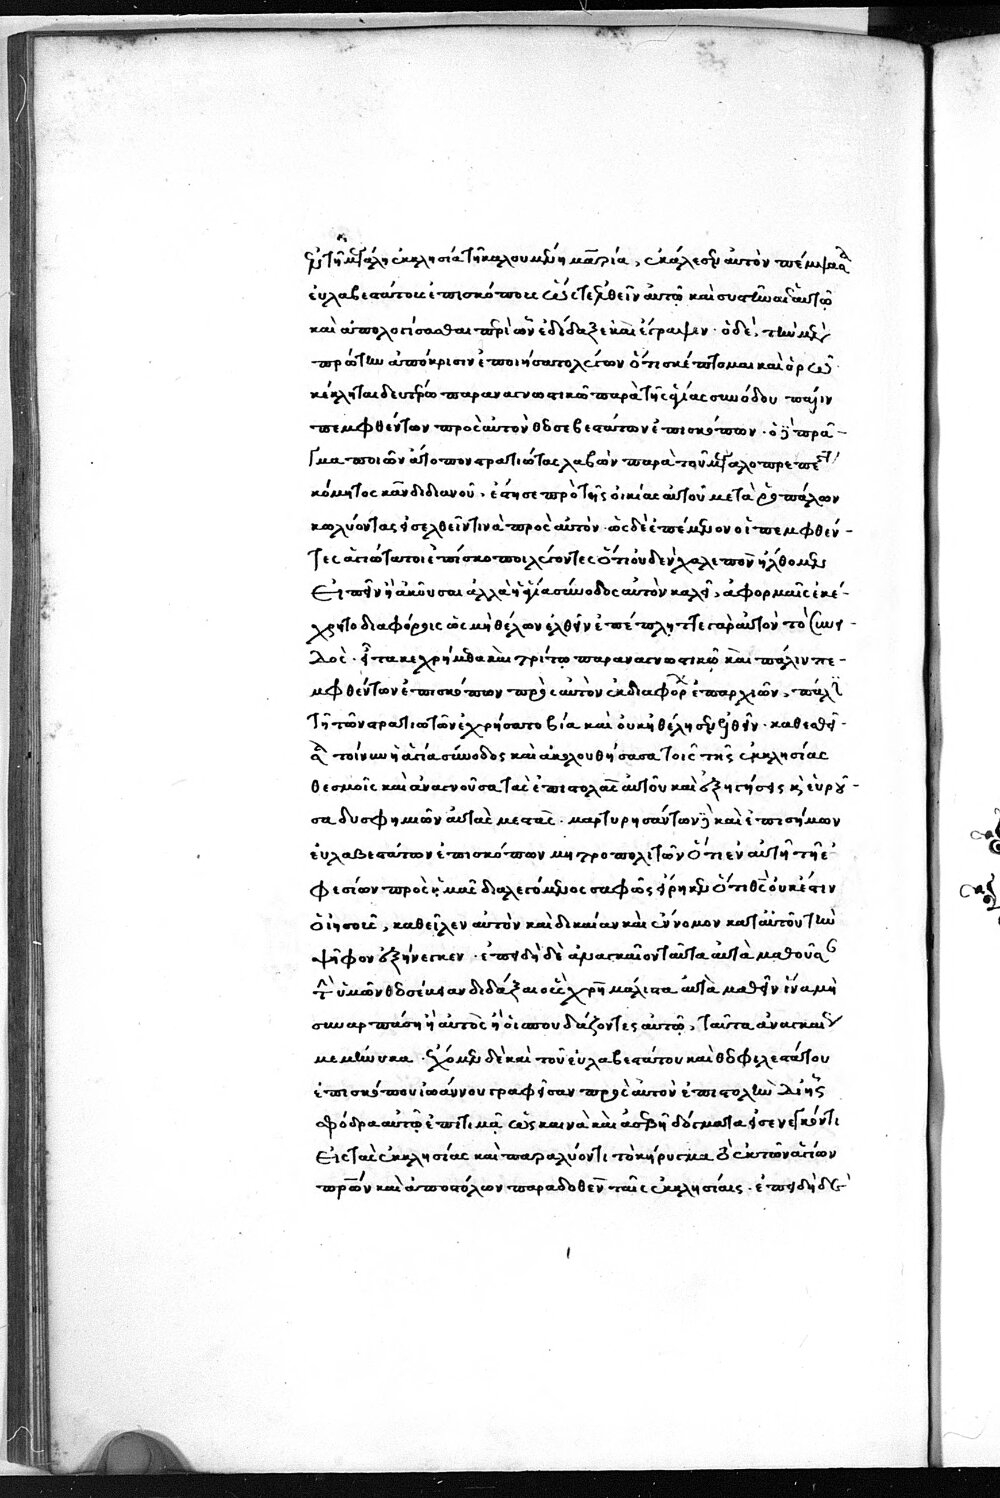 ἐν τῆ μεγάλη ἐκκλησία τῆ καλουμένη μαρία, ἐκάλεσεν αὐτὸν πέμψασα
εὐλαβεστάτους ἐπισκόπους ὥστε ἐλθεῖν αὐτῶ καὶ συστῆναι αὐτῶ
καὶ ἀπολογήσασθαι περὶ ὧν ἐδίδαξε καὶ ἔγραψεν· ὁ δὲ, τὴν μὲν
πρώτην ἀπόκρισιν ἐποιήσατο λέγων ὅτι σκέπτομαι καὶ ὁρῶ
κέκληται δευτέρω παραναγνωστικῶ παρὰ τῆς ἁγίας συνόδου πάλιν
πεμφθέντων πρὸς αὐτὸν θεοσεβεστάτων ἐπισκόπων· ὁ δὲ πρᾶ-
γμα ποιῶν ἄτοπον στρατιώτας λαβὼν παρὰ τοῦ μεγαλοπρεπεστ
κόμητος κανδιδιανοῦ, ἔστησε πρὸ τῆς οἰκίας αὐτοῦ μετὰ ῥοπάλων
κωλύοντας εἰσελθεῖν τινὰ πρὸς αὐτὸν· ὡς δὲ ἐπέμενον οἱ πεμφθέν-
τες ἁγιώτατοι ἐπίσκοποι λέγοντες ὅτι οὐδὲν χαλεπὸν ἤλθομεν
εἰπεῖν ἢ ἀκοῦσαι ἀλλὰ ἡ ἁγία σύνοδος αὐτὸν καλεῖ, ἀφορμαῖς ἐκέ-
χρητο διαφόροις ὡς μὴ θέλων ἐλθεῖν ἐπέπληττε γὰρ αὐτὸν τὸ συνει-
δὸς· εἶτα κεχρήμεθα καὶ τρίτω παραναγνωστικῶ καὶ πάλιν πε-
μφθέντων ἐπισκόπων πρὸς αὐτὸν ἐκ διαφόρων ἐπαρχιῶν, πάλιν
τῆ τῶν στρατιωτῶν ἐχρήσατο βία καὶ οὐκ ἠθέλησεν ἐλθεῖν· καθεσθεῖ-
σα τοίνυν ἡ ἁγία σύνοδος καὶ ἀκολουθήσασα τοῖς τῆς ἐκκλησίας
θεσμοῖς καὶ ἀναγνοῦσα τὰς ἐπιστολὰς αὐτοῦ καὶ ἐξηγήσεις κ εὑροῦ-
σα δυσφημιῶν αὐτὰς μεστὰς· μαρτυρησάντων δὲ καὶ ἐπισήμων
εὐλαβεστάτων ἐπισκόπων μητροπολιτῶν ὅτι ἐν αὐτῆ τῆ ἐ
φεσίων πρὸς ἡμᾶς διαλεγόμενος σαφῶς εἴρηκεν ὅτι θεὸς οὐκ ἔστιν
ὁ ἰησοῦς, καθεῖλεν αὐτὸν καὶ δικαίαν καὶ ἔννομον κατ' αὐτοῦ τὴν
ψῆφον ἐξήνεγκεν· ἐπειδὴ δὲ ἀναγκαῖον ταῦτα αὐτὰ μαθοῦσαν
τὴν ὑμῶν θεοσέβειαν διδάξαι οὓς χρὴ μάλιστα αὐτὰ μαθεῖν ἵνα μὴ
συναρπάση ἢ αὐτὸς ἢ οἱ σπουδάζοντες αὐτῶ, ταῦτα ἀναγκαίως
μεμήνυκα· ἔχομεν δὲ καὶ τοῦ εὐλαβεστάτου καὶ θεοφιλεστάτου
ἐπισκόπου ἰωάννου γραφεῖσαν πρὸς αὐτὸν ἐπιστολὴν δι' ἧς
σφόδρα αὐτῶ ἐπιτιμᾶ ὡς καινὰ καὶ ἀσεβῆ δόγματα εἰσενεγκόντι
εἰς τὰς ἐκκλησίας καὶ παραλύοντι τὸ κήρυγμα τὸ ἐκ τῶν ἁγίων
πρῶν καὶ ἀποστόλων παραδοθὲν ταῖς ἐκκλησίαις· ἐπειδὴ δὲ